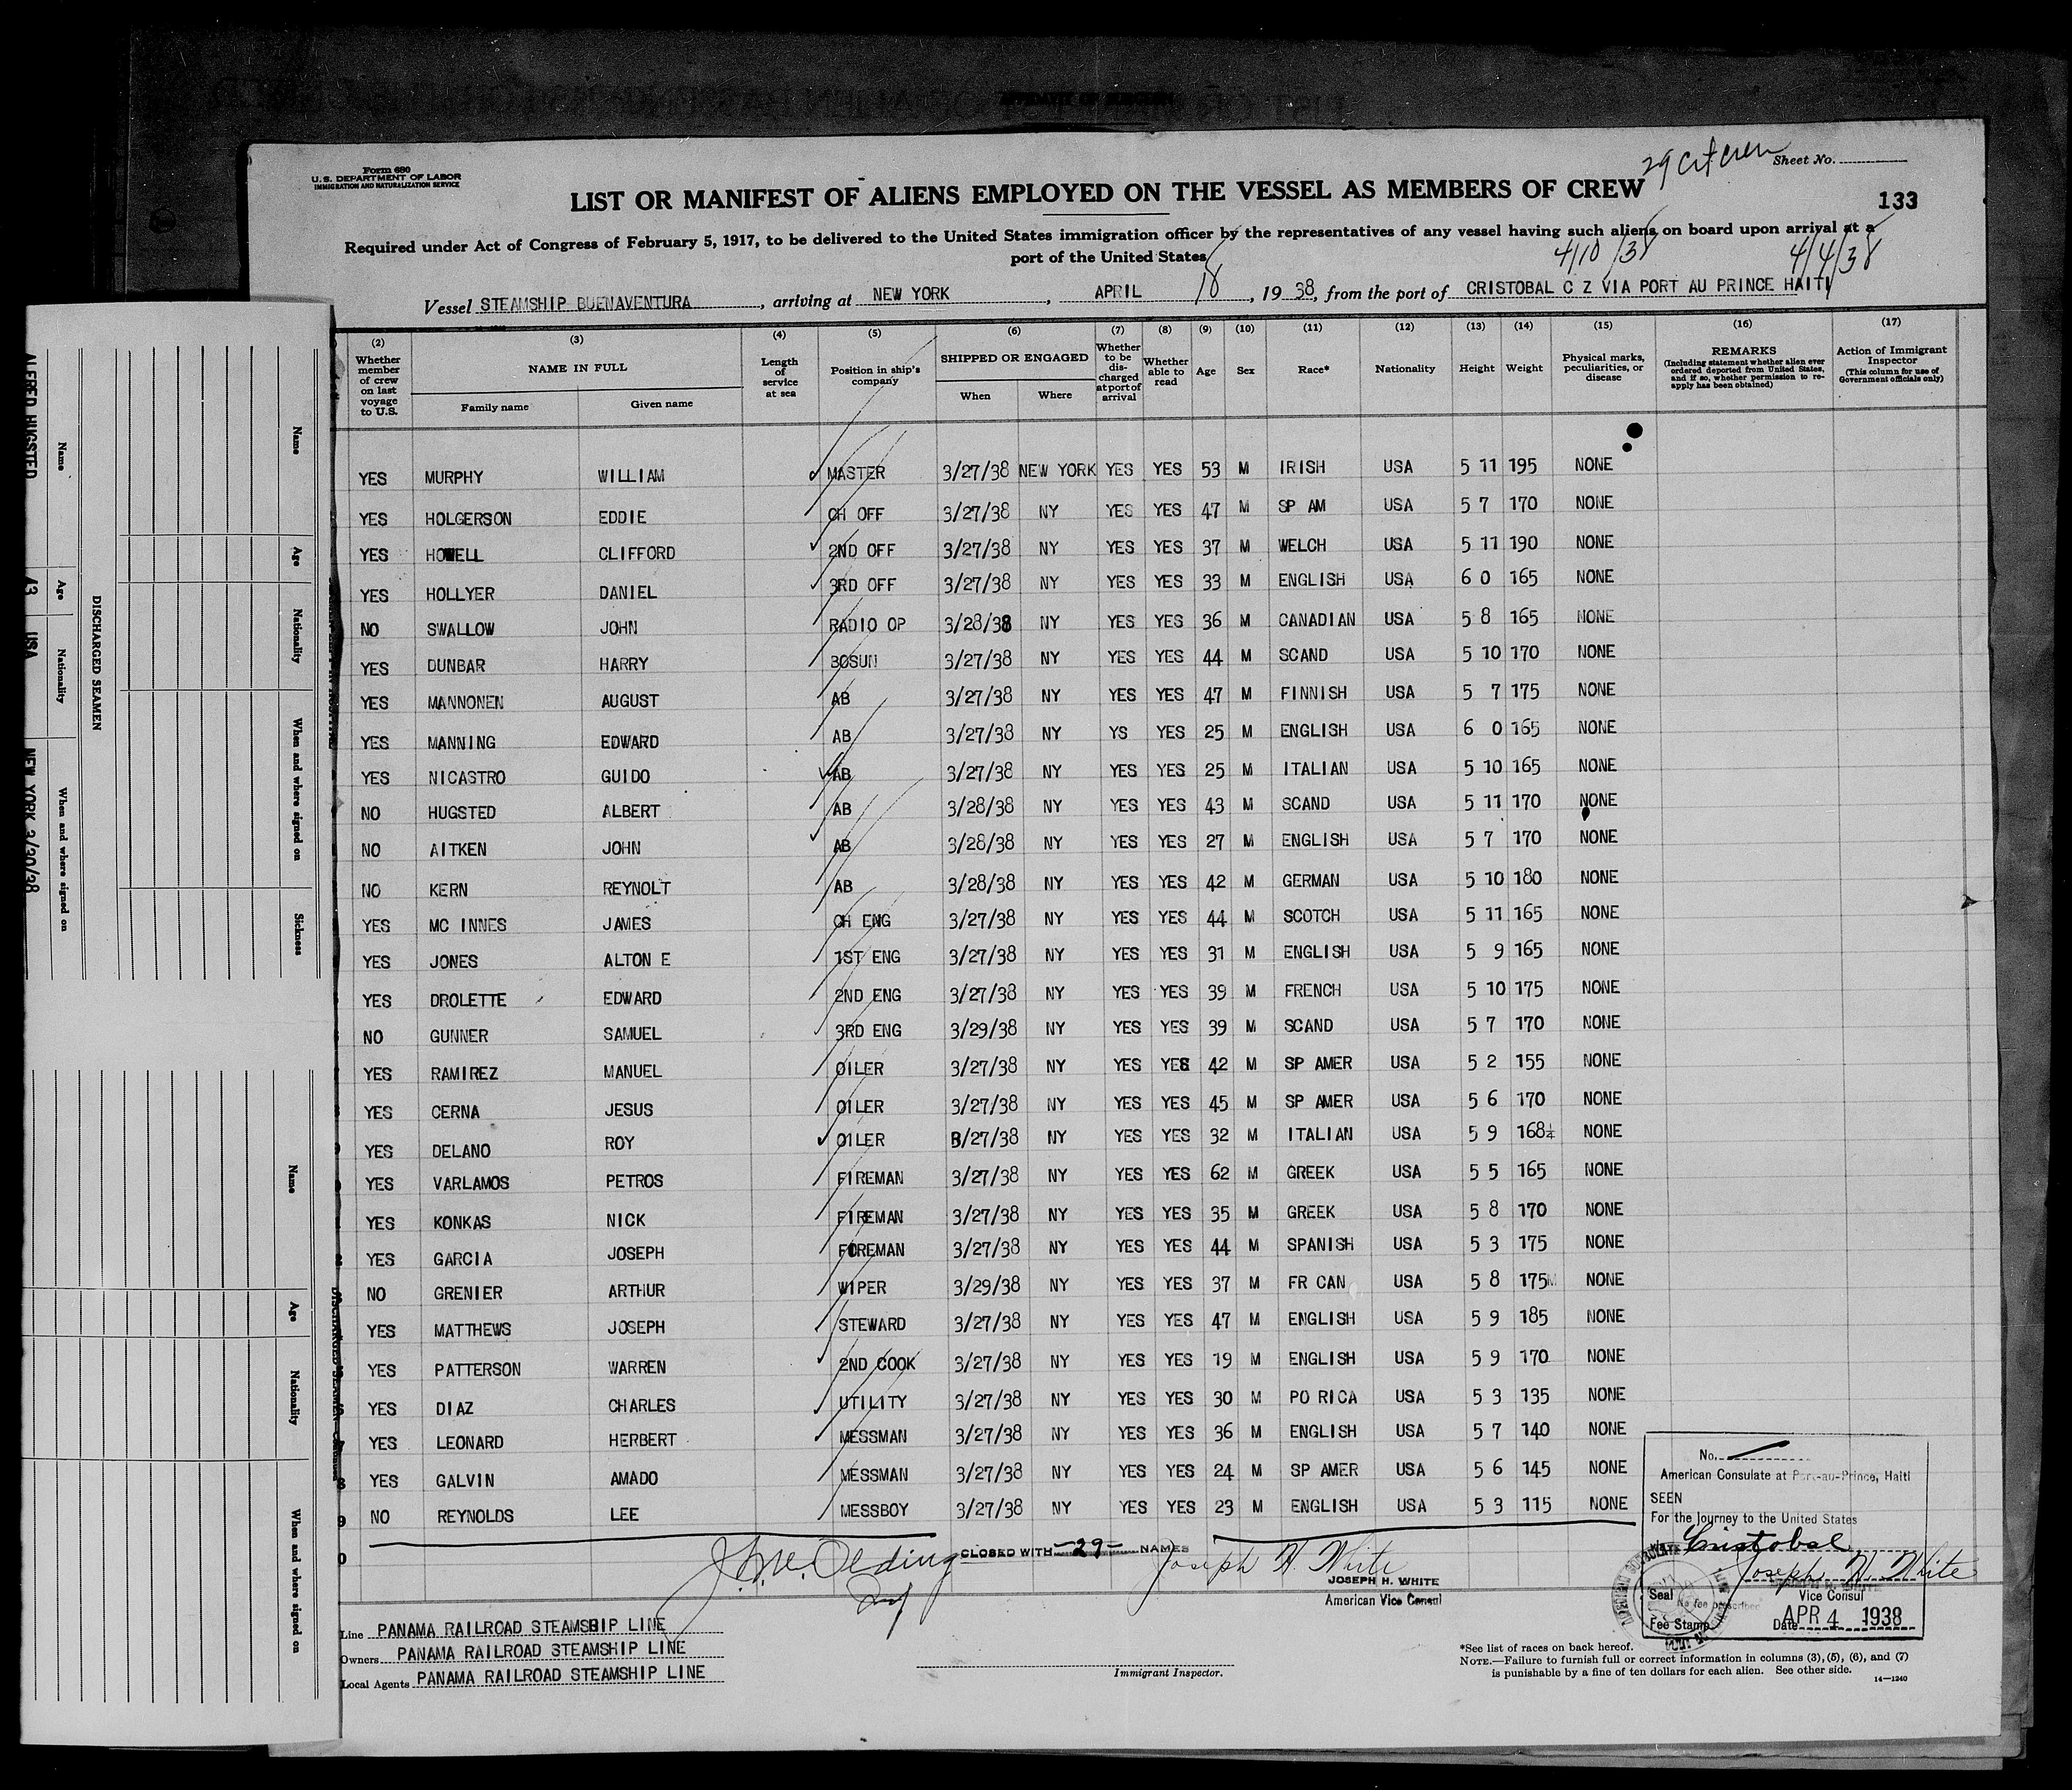 29 Cit Crew
Sheet No.
Form 680
U.S. DEPARTMENT OF LABOR
IMMIGRATION AND NATURALIZATION SERVICE
LIST OR MANIFEST OF ALIENS EMPLOYED ON THE VESSEL AS MEMBERS OF CREW
133
Required under Act of Congress of February 5, 1917, to be delivered to the United States immigration officer by the representatives of any vessel having such aliens on board upon arrival at a
port of the United States
4/10/38 4/4/38
Vessel STEAMSHIP BUENAVENTURA, arriving at NEW YORK, APRIL 18, 1938, from the port of CRISTOBAL C Z VIA PORT AU PRINCE HAITI
(2) (3) (4) (5) (6) (7) (8) (9) (10) (11) (12) (13) (14) (15) (16) (17)
Whether member of crew on last voyage to U.S. NAME IN FULL Family name Given name Length of service at sea Position in ship's company SHIPPED OR ENGAGED When Where Whether to be discharged at port of arrival Whether able to read Age Sex Race* Nationality Height Weight Physical marks, peculiarities, or disease REMARKS (Including statement whether alien ever ordered deported from United States, and if so, whether permission to reapply has been obtained) Action of Immigrant Inspector (This column for use of Government officials only)
YES MURPHY WILLIAM MASTER 3/27/38 NEW YORK YES YES 53 M IRISH USA 5 11 195 NONE
YES HOLGERSON EDDIE CH OFF 3/27/38 NY YES YES 47 M SP AM USA 5 7 170 NONE
YES HOWELL CLIFFORD 2ND OFF 3/27/38 NY YES YES 37 M WELCH USA 5 11 190 NONE
YES HOLLYER DANIEL 3RD OFF 3/27/38 NY YES YES 33 M ENGLISH USA 6 0 165 NONE
NO SWALLOW JOHN RADIO OP 3/28/38 NY YES YES 36 M CANADIAN USA 5 8 165 NONE
YES DUNBAR HARRY BOSUN 3/27/38 NY YES YES 44 M SCAND USA 5 10 170 NONE
YES MANNONEN AUGUST AB 3/27/38 NY YES YES 47 M FINNISH USA 5 7 175 NONE
YES MANNING EDWARD AB 3/27/38 NY YS YES 25 M ENGLISH USA 6 0 165 NONE
YES NICASTRO GUIDO AB 3/27/38 NY YES YES 25 M ITALIAN USA 5 10 165 NONE
NO HUGSTED ALBERT AB 3/28/38 NY YES YES 43 M SCAND USA 5 11 170 NONE
NO AITKEN JOHN AB 3/28/38 NY YES YES 27 M ENGLISH USA 5 7 170 NONE
NO KERN REYNOLT AB 3/28/38 NY YES YES 42 M GERMAN USA 5 10 180 NONE
YES MC INNES JAMES CH ENG 3/27/38 NY YES YES 44 M SCOTCH USA 5 11 165 NONE
YES JONES ALTON E 1ST ENG 3/27/38 NY YES YES 31 M ENGLISH USA 5 9 165 NONE
YES DROLETTE EDWARD 2ND ENG 3/27/38 NY YES YES 39 M FRENCH USA 5 10 175 NONE
NO GUNNER SAMUEL 3RD ENG 3/29/38 NY YES YES 39 M SCAND USA 5 7 170 NONE
YES RAMIREZ MANUEL OILER 3/27/38 NY YES YES 42 M SP AMER USA 5 2 155 NONE
YES CERNA JESUS OILER 3/27/38 NY YES YES 45 M SP AMER USA 5 6 170 NONE
YES DELANO ROY OILER 3/27/38 NY YES YES 32 M ITALIAN USA 5 9 168¼ NONE
YES VARLAMOS PETROS FIREMAN 3/27/38 NY YES YES 62 M GREEK USA 5 5 165 NONE
YES KONKAS NICK FIREMAN 3/27/38 NY YES YES 35 M GREEK USA 5 8 170 NONE
YES GARCIA JOSEPH FOREMAN 3/27/38 NY YES YES 44 M SPANISH USA 5 3 175 NONE
NO GRENIER ARTHUR WIPER 3/29/38 NY YES YES 37 M FR CAN USA 5 8 175 NONE
YES MATTHEWS JOSEPH STEWARD 3/27/38 NY YES YES 47 M ENGLISH USA 5 9 185 NONE
YES PATTERSON WARREN 2ND COOK 3/27/38 NY YES YES 19 M ENGLISH USA 5 9 170 NONE
YES DIAZ CHARLES UTILITY 3/27/38 NY YES YES 30 M PO RICA USA 5 3 135 NONE
YES LEONARD HERBERT MESSMAN 3/27/38 NY YES YES 36 M ENGLISH USA 5 7 140 NONE
YES GALVIN AMADO MESSMAN 3/27/38 NY YES YES 24 M SP AMER USA 5 6 145 NONE
9 NO REYNOLDS LEE MESSBOY 3/27/38 NY YES YES 23 M ENGLISH USA 5 3 115 NONE
0 CLOSED WITH -29- NAMES Joseph H. White
JOSEPH H. WHITE
American Vice Consul
No.
American Consulate at Port-au-Prince, Haiti
SEEN
For the Journey to the United States
Cristobal
Joseph H. White
Vice Consul
Seal No fee prescribed
Fee Stamp
Date APR 4 1938
Line PANAMA RAILROAD STEAMSHIP LINE
Owners PANAMA RAILROAD STEAMSHIP LINE
Local Agents PANAMA RAILROAD STEAMSHIP LINE
Immigrant Inspector.
*See list of races on back hereof.
NOTE.—Failure to furnish full or correct information in columns (3), (5), (6), and (7)
is punishable by a fine of ten dollars for each alien. See other side.
14—1240
DISCHARGED SEAMEN
Name Age Nationality When and where signed on
ALFRED HUGSTED 43 USA NEW YORK 3/30/38
Name Age Nationality When and where signed on Sickness
Name Age Nationality When and where signed on